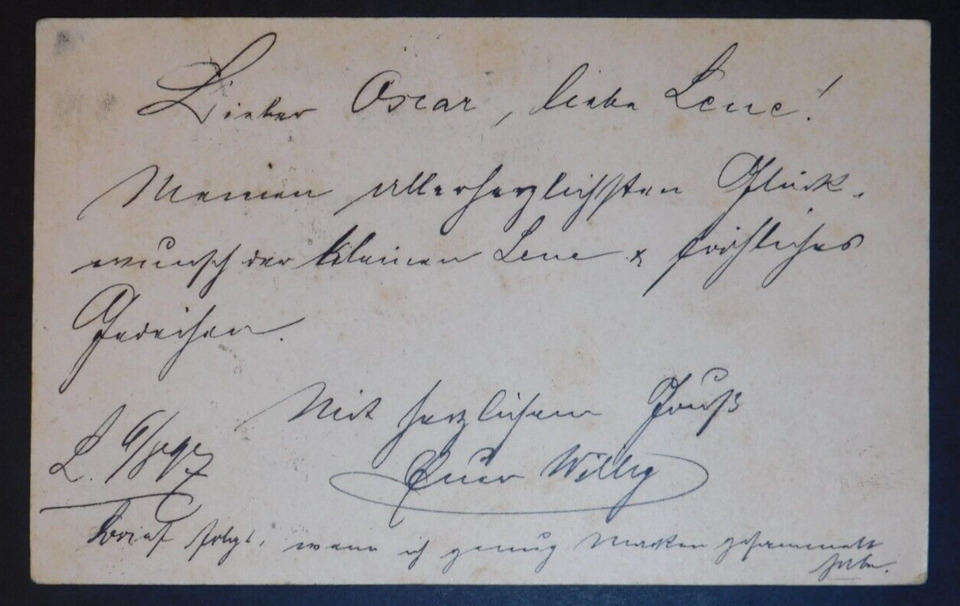 Lieber Oscar, liebe Lene!
Meinen allerherzlichsten Glück-
wunsch der kleinen Lene & fröhliches
Gedeihen.
Mit herzlichem Gruß
Euer Willy
L. 6/
Brief folgt, wenn ich genug Marken gesammelt
habe.